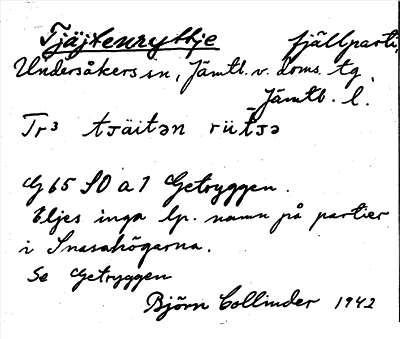 Tjäjtenryttje fjällparti,
Undersåkers sn, Jämtl. v. doms. tg,
Jämtl. l.
Tr³ tjäitən rütjə
G 65 SO a 1 Getryggen.
Eljes inga lp. namn på partier
i Snasahögarna.
Se Getryggen
Björn Collinder 1942